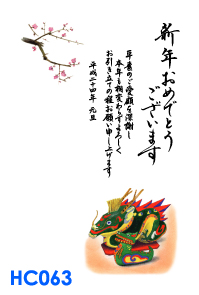 新年おめでとう
ございます
平素のご愛顧を深謝し
本年も相変わらずよろしく
お引き立ての程お願い申し上げます
平成二十四年 元旦
HC063